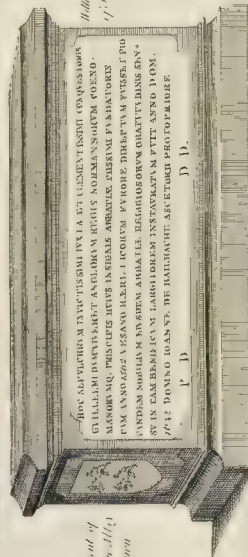 HOC SEPVLCHRVM INVICTISSIMI IVXTA ET CLEMENTISSIMI CONQVESTORIS
GVILLELMI DVM VIVERET ANGLORVM REGIS NORMANNORVM COENO-
MANORVMQ. PRINCIPIS HVIVS INSIGNIS ABBATIÆ PIISSIMI FVNDATORIS
CVM ANNO VESANO HÆRETICORVM FVRORE DIREPTVM FVISSET PIO
TANDEM NOBILIVM EIVSDEM ABBATIÆ RELIGIOSORVM GRATITVDINIS SEN-
SV IN TAM BENEFICVM LARGITOREM INSTAVRATVM FVIT ANNO DOM.
DOMNO IOANNE DE BAILHACHE ASCETORII PROTOPRIORE.
P D D.